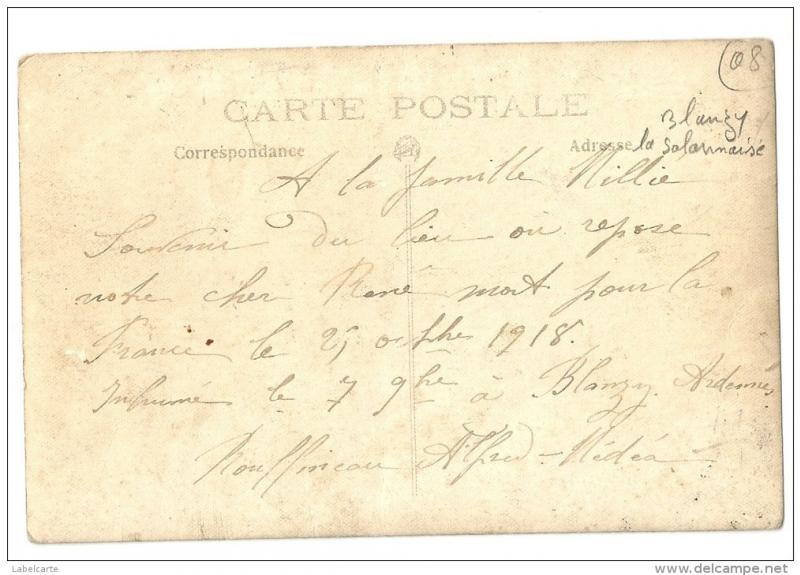 08
CARTE POSTALE
Blanzy
Correspondance Adresse la Salonnaise
A la famille Millié
Souvenir du lieu où repose
notre cher René mort pour la
France le 25 1918.
Inhumé le 7 9bre à Blanzy Ardennes
Alfred - Médéa
Labelcarte
www.delcampe.net